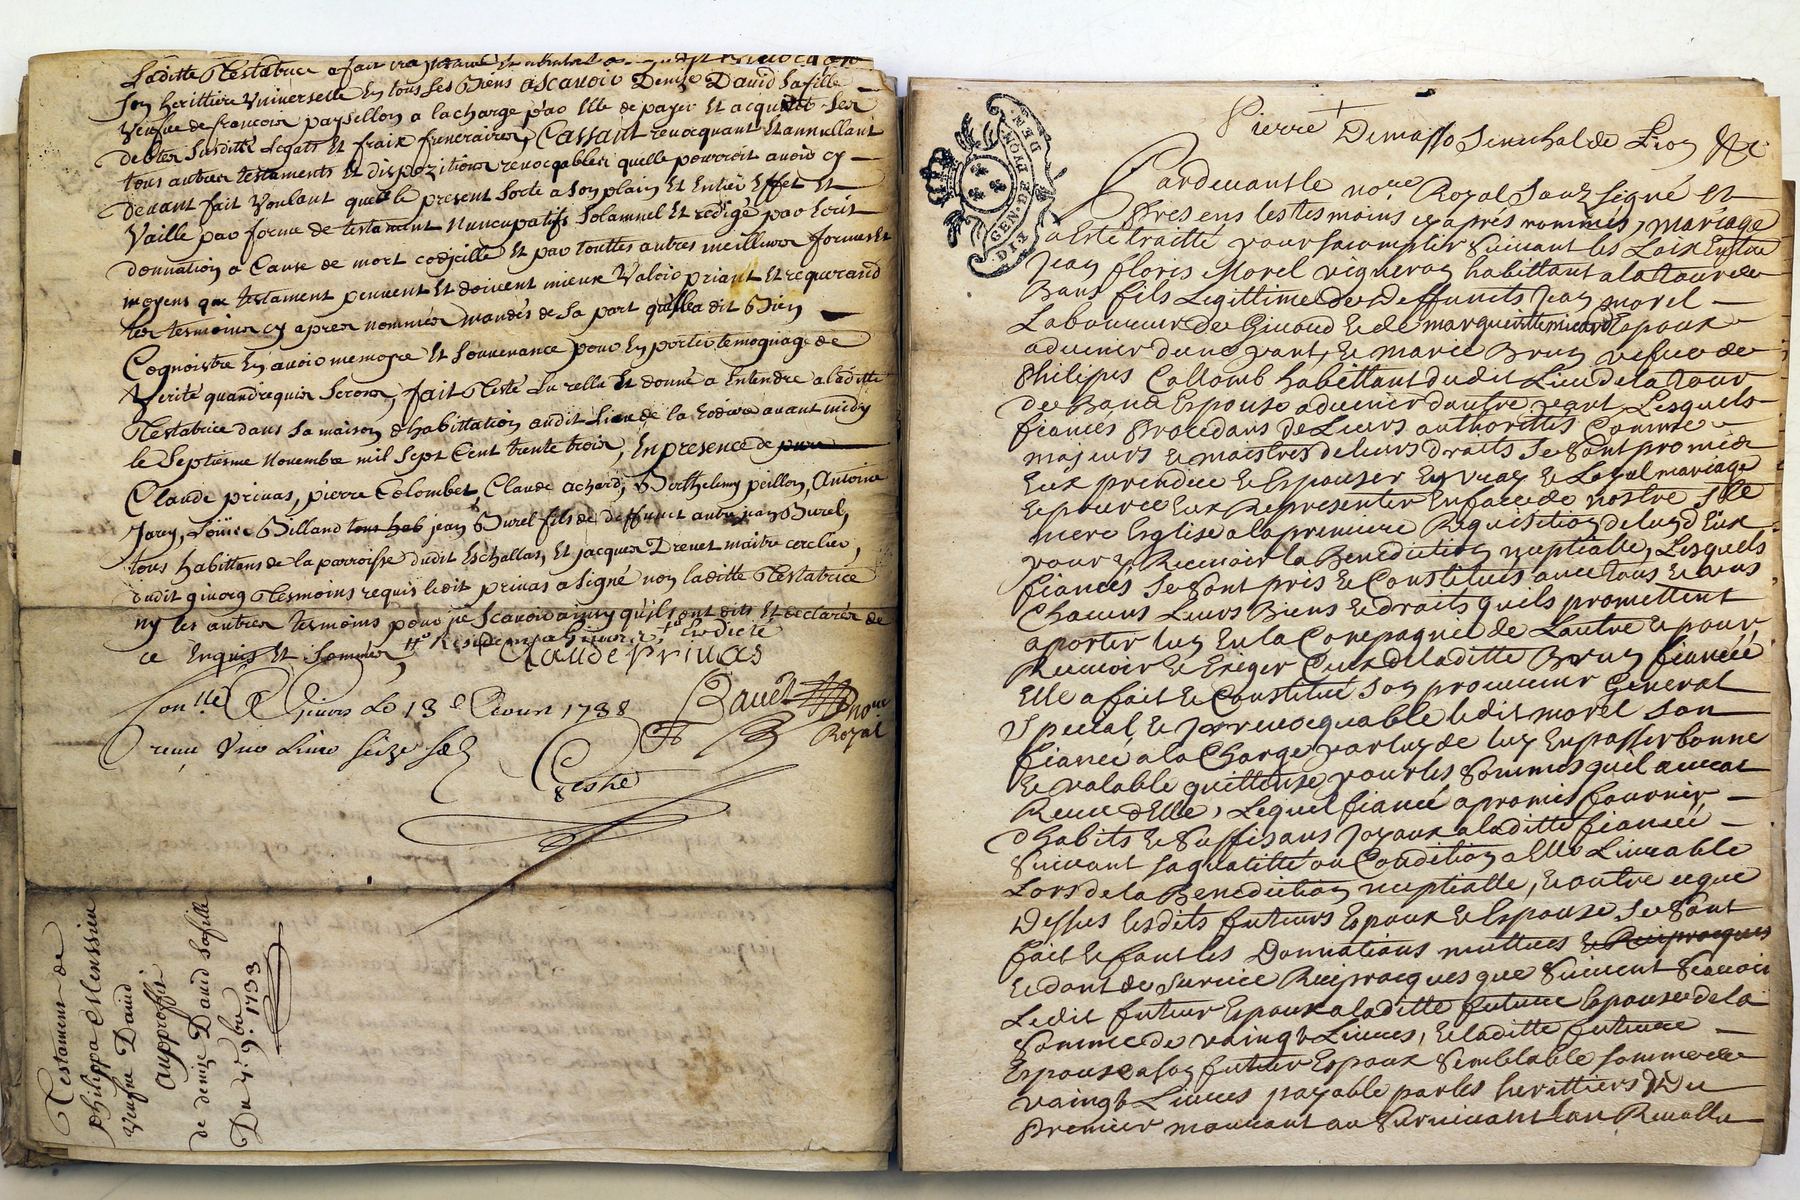 Laditte Testatrice a fait
son herittiere Universelle en tous ses Biens ascavoir Denize David sa fille
Veufve de francois paysellon a la charge par Elle de payer Et acquitter ses
debtes susditts Legats Et fraix funeraires, Cassant revocquant Et annullant
tous autres testaments Et dispozitions revocquables quelle pourroit avoir cy
devant fait Voulant que le present sorte a son plain Et Entier Effet Et
Vaille par forme de testament Nuncupatifs solamnel Et redigé par Ecrit
donnation a Cause de mort codicille Et par touttes autres meilleures formes Et
moyens que testament peuvent Et doivent mieux Valoir priant Et requerand
les tesmoins cy apres nommés mandés de sa part quelle a dit Bien
Cognoistre En avoir memoire Et souvenance pour En porter temognage de
Verité quand requis seront, fait Testé Lu relu Et donné a Entendre a laditte
Testatrice dans sa maison d'habittation audit Lieu de la Rodiere avant midy
le Septieme Novembre mil Sept Cent trente trois, En presence de
Claude privas, pierre Colombet, Claude achard, Berthelimy peillon, Antoine
Jarey, Louis Billand tous hab jean Burel fils de deffunct autre jean Burel,
tous habittans de la parroisse dudit Eschallas, Et jacques Drevet maitre cerclier,
dudit givors Tesmoins requis ledit privas a signé non laditte Testatrice
ny les autres tesmoins pour ne scavoir ainsy qu'ils ont dits Et declarés de
ce Enquis Et sommés,
Claude Privas
Con.lle A Givors Le 13e 1738
receu Une Livre seize s.
Bavet no.re
Royal
Testament de
philippa
Veufve David
auproffit
de denize David sa fille
Du 7e 9bre 1733
GEN. DE LYON
Pierre Demasso Senechal de Lion &c
Pardevant le no.re Royal Souz signé et
Presens les tesmoins cy apres nommés, mariage
a Esté traitté pour sacomplir suivant les Loix Entre
Jean floris Morel vigneron habittant a la tour de
Bans fils Legittime des deffuncts Jean Morel
Laboureur de Givord & de margueritte Espoux
advenir dune part, & marie Brun vefve de
Philipes Collomb habittant dudit Lieu de la Tour
de Bans Espouse advenir dautre part, Lesquels
fiancés procedans de Leurs authorittés Comme
majeurs & maistres de leurs droits se sont promis
Eux prendre & Espouser En vray & Loyal mariage
& pource Eux Representer En face de nostre Ste
mere Esglise a la premiere Requisition de lun d'Eux
pour y Recevoir la Benediction nuptialle, Lesquels
fiancés se sont pris & Constitués avec tous & uns
Chacuns Leurs Biens & droits quils promettent
aporter lun En la Compagnie de Lautre & pour
Recevoir & Exiger Ceux de laditte Brun fiancée
Elle a fait & Constitué son procureur General
Special & Irrevocquable ledit morel son
fiancé a la Charge par luy de luy En passer bonne
& valable quittance pour les sommes quil aura
Receu dElle, Lequel fiancé a promis fournir
dhabits & suffisans Joyaux a laditte fiancée
suivant sa qualitté ou Condition a Elle Livrable
Lors de la Benediction nuptialle, & outre ce que
Dessus lesdits futeurs Espoux & Espouse se sont
fait & font les Donnations mutues & Reciprocques
& dont de survie Reciprocques que suivent scavoir
Ledit futeur Espoux a laditte future Espouse de la
somme de vaingt Livres, & laditte future
Espouse a son futeur Espoux semblable somme de
vaingt Livres payable par les herittiers du
Premier mourant au survivant lan Revollu